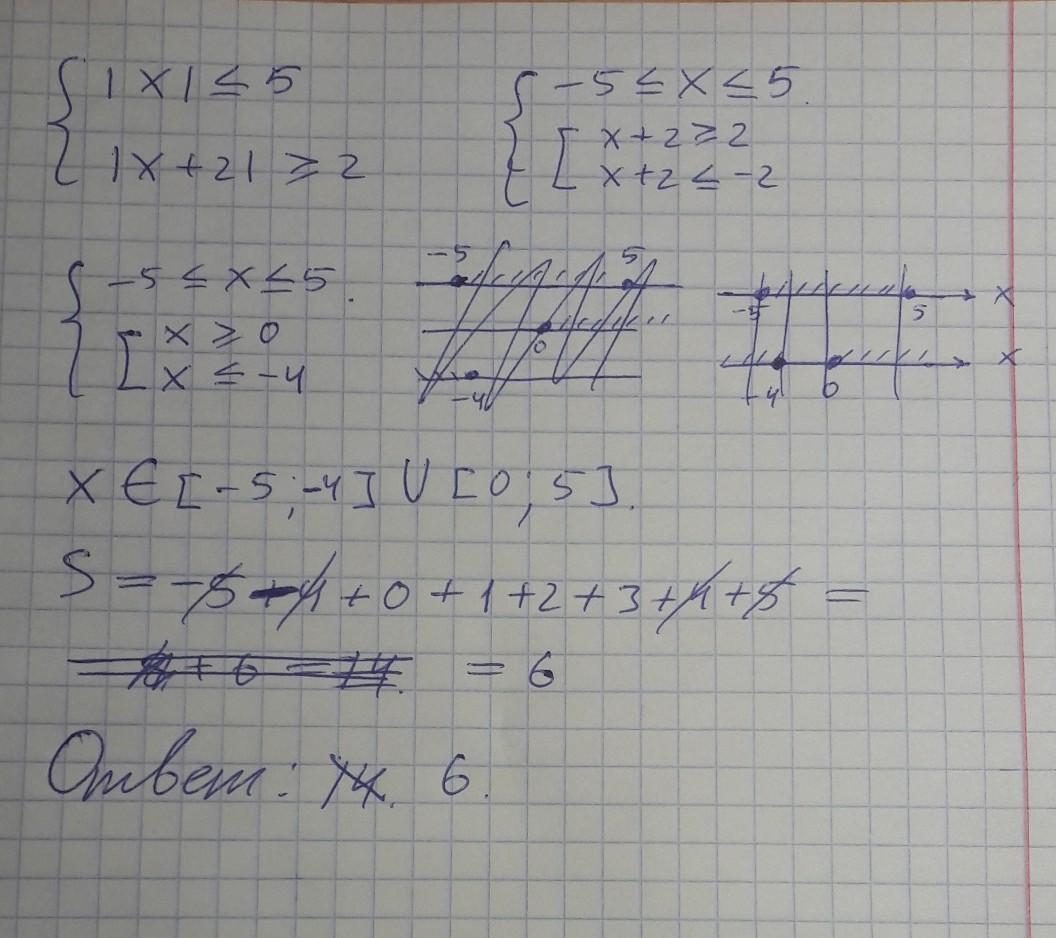 { |x| ≤ 5
|x+2| ≥ 2
{ -5 ≤ x ≤ 5.
[ x+2 ≥ 2
x+2 ≤ -2
{ -5 ≤ x ≤ 5.
[ x ≥ 0
x ≤ -4
-5 5
0
-4
-5 5 x
-4 0 x
x ∈ [-5; -4] ∪ [0; 5].
S = -5 - 4 + 0 + 1 + 2 + 3 + 4 + 5 =
+ 6 = 14. = 6
Ответ: 14. 6.